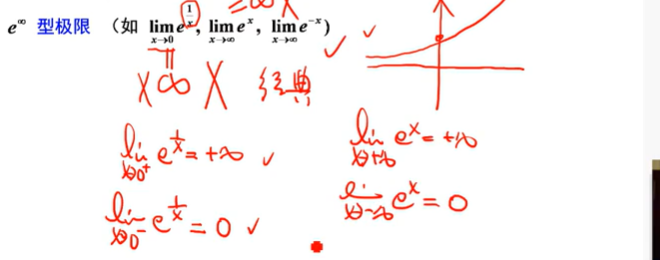 =∞ X
e^∞ 型极限 (如 lim_{x→0} e^{1/x}, lim_{x→∞} e^x, lim_{x→∞} e^{-x})
X ∞ X 经典
lim_{x→0⁺} e^{1/x} = +∞ ✓
lim_{x→+∞} e^x = +∞
lim_{x→0⁻} e^{1/x} = 0 ✓
lim_{x→-∞} e^x = 0